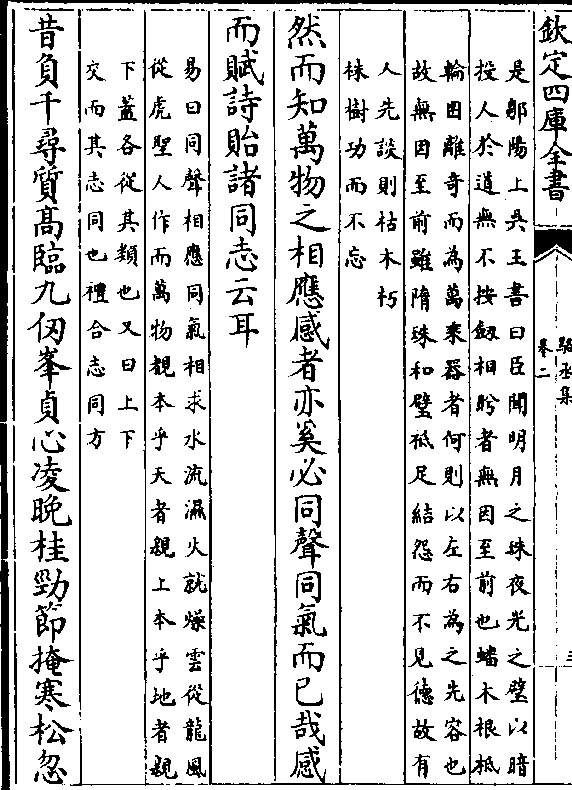 欽定四庫全書
駱丞集
卷二
三
是鄒陽上吳王書曰臣聞明月之珠夜光之璧以暗
投人於道無不按劔相眄者無因至前也蟠木根柢
輪囷離奇而為萬乘器者何則以左右為之先容也
故無因至前雖隋珠和璧秪足結怨而不見德故有
人先談則枯木朽
株樹功而不忘
然而知萬物之相應感者亦奚必同聲同氣而已哉感
而賦詩貽諸同志云耳
易曰同聲相應同氣相求水流濕火就燥雲從龍風
從虎聖人作而萬物覩本乎天者親上本乎地者親
下葢各從其類也又曰上下
交而其志同也禮合志同方
昔負千尋質高臨九仭峯貞心凌晚桂勁節掩寒松忽